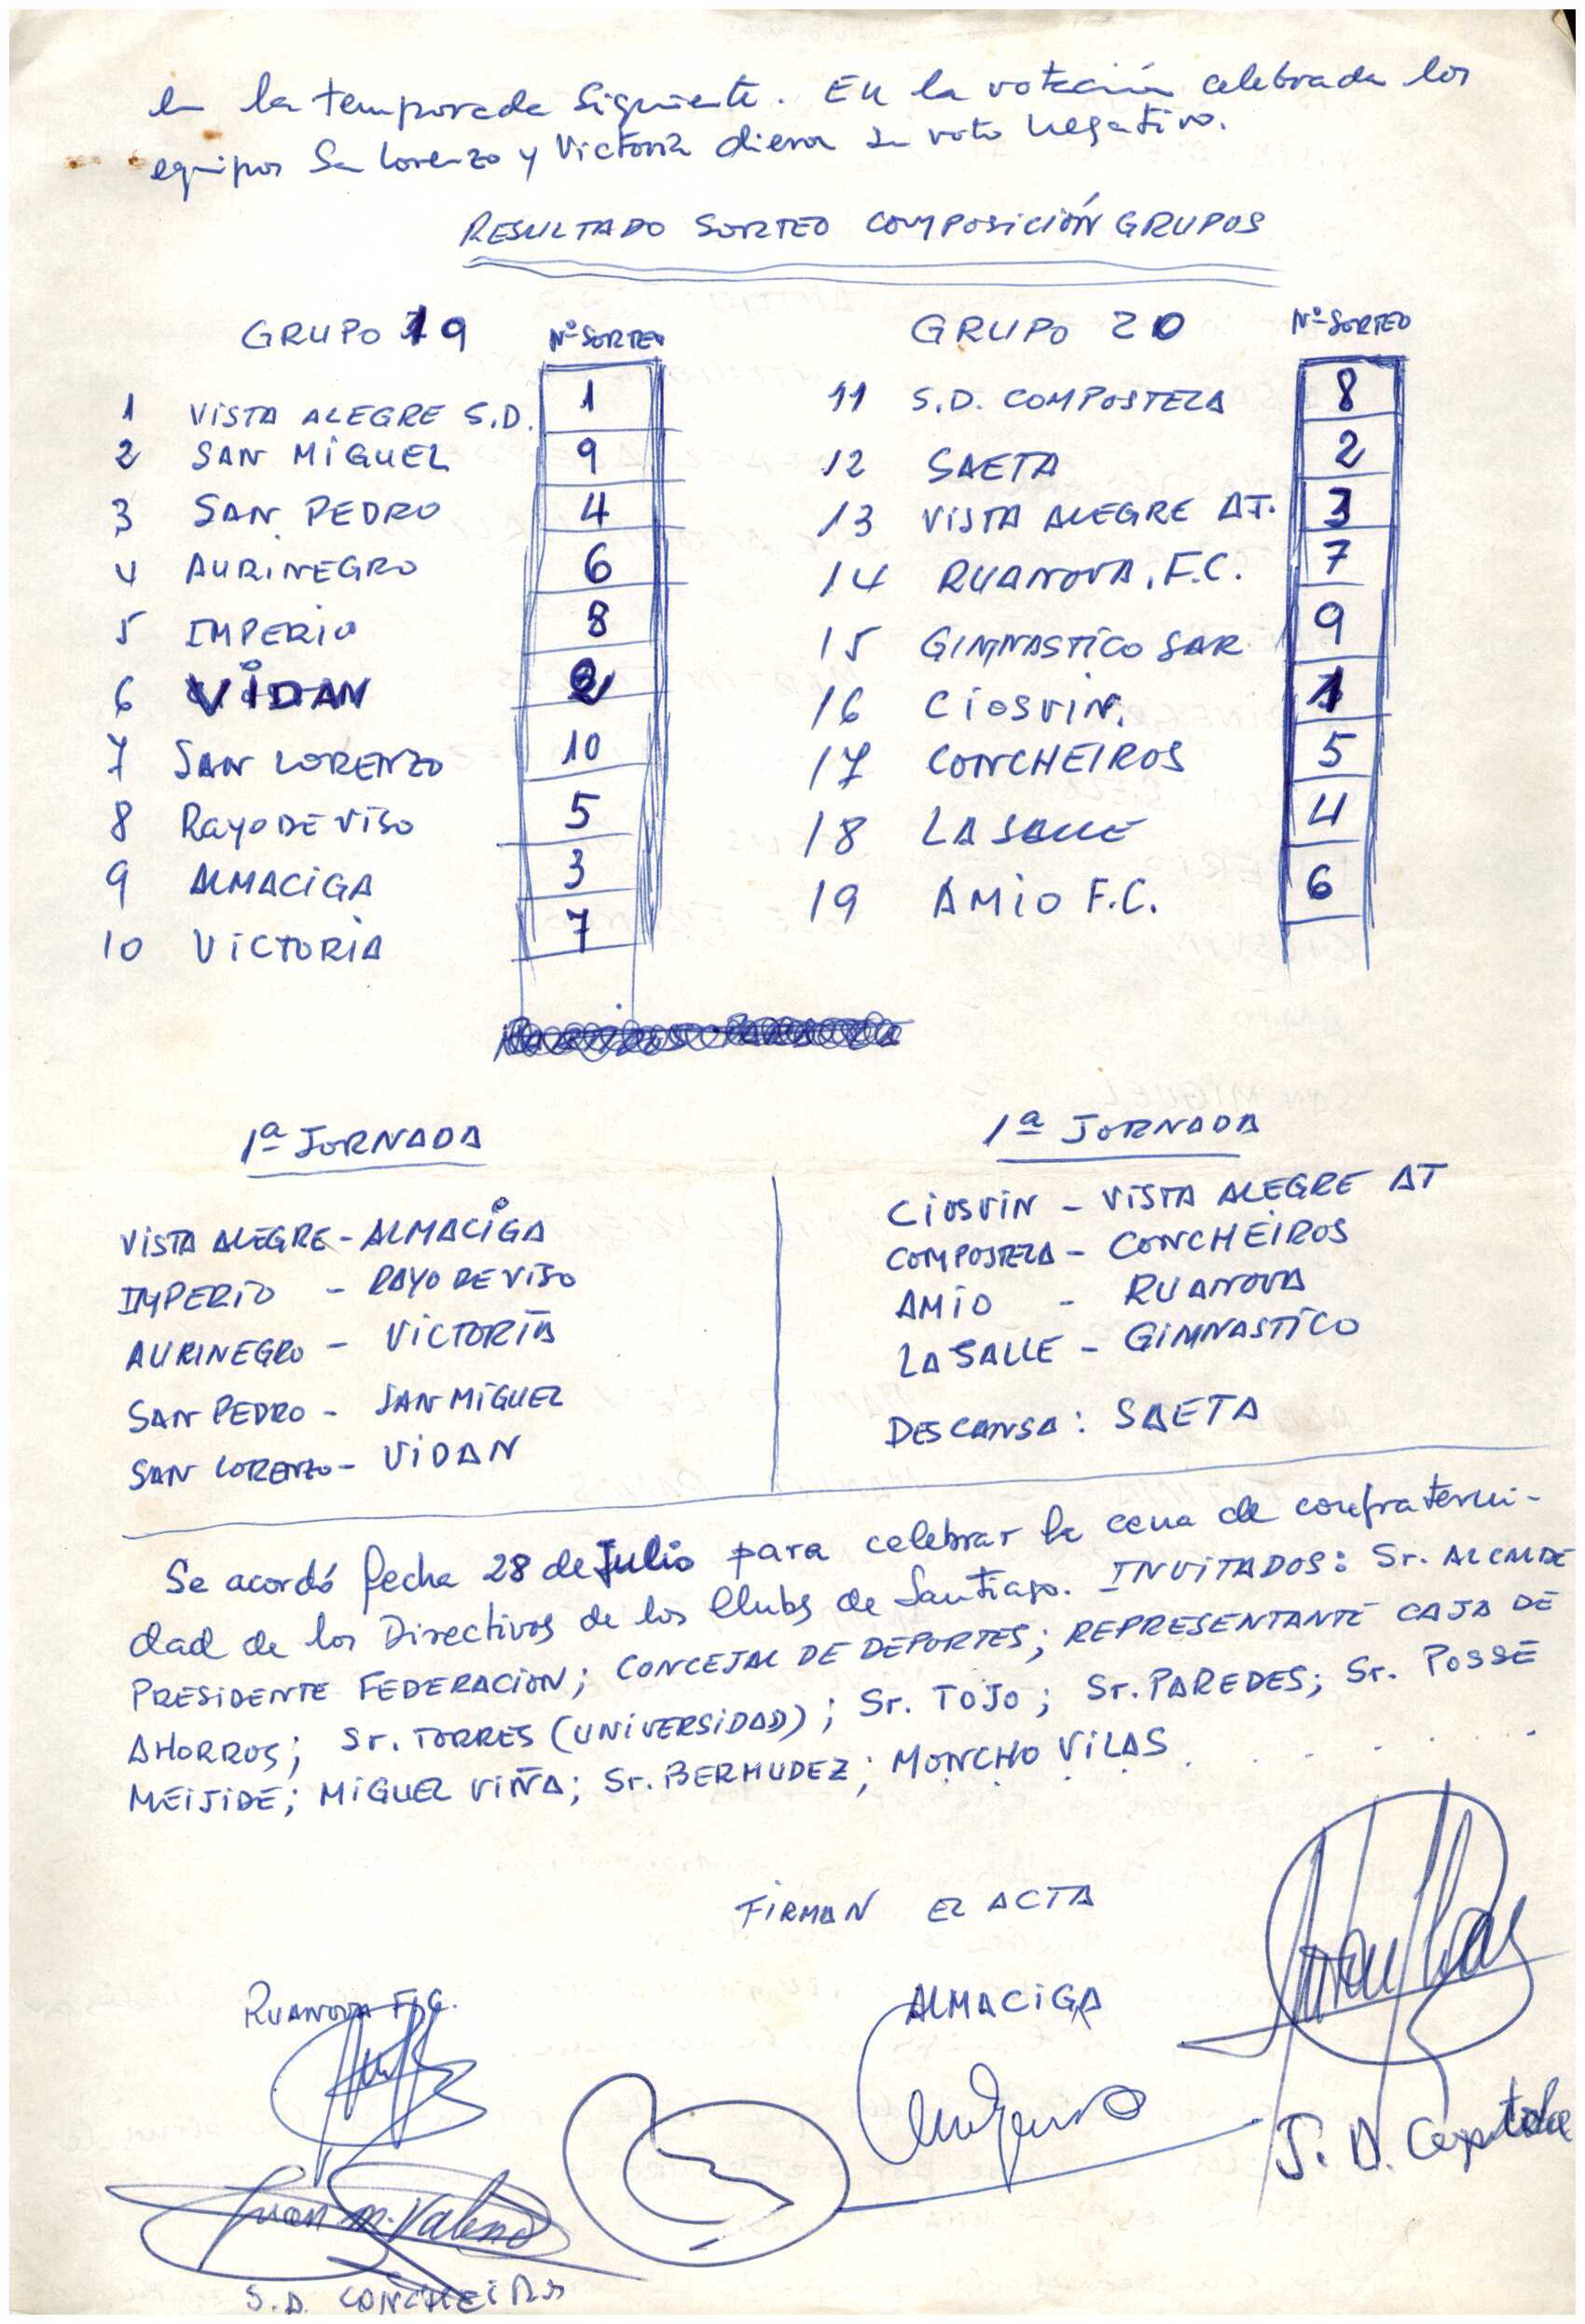 en la temporada siguiente. En la votación celebrada los
equipos San Lorenzo y Victoria dieron su voto negativo.
RESULTADO SORTEO COMPOSICIÓN GRUPOS
GRUPO 19 Nº SORTEO
1 VISTA ALEGRE S.D. 1
2 SAN MIGUEL 9
3 SAN PEDRO 4
4 AURINEGRO 6
5 IMPERIO 8
6 VIDAN 2
7 SAN LORENZO 10
8 Rayo DE VISO 5
9 ALMACIGA 3
10 VICTORIA 7
GRUPO 20 Nº SORTEO
11 S.D. COMPOSTELA 8
12 SAETA 2
13 VISTA ALEGRE AT. 3
14 RUANOVA. F.C. 7
15 GIMNASTICO SAR 9
16 CIOSVIN. 1
17 CONCHEIROS 5
18 LA SALLE 4
19 AMIO F.C. 6
1ª JORNADA
VISTA ALEGRE - ALMACIGA
IMPERIO - RAYO DE VISO
AURINEGRO - VICTORIA
SAN PEDRO - SAN MIGUEL
SAN LORENZO - VIDAN
1ª JORNADA
CIOSVIN - VISTA ALEGRE AT
COMPOSTELA - CONCHEIROS
AMIO - RUANOVA
LA SALLE - GIMNASTICO
DESCANSA: SAETA
Se acordó fecha 28 de Julio para celebrar la cena de confraterni-
dad de los Directivos de los Clubs de Santiago. INVITADOS: Sr. ALCALDE
PRESIDENTE FEDERACION; CONCEJAL DE DEPORTES; REPRESENTANTE CAJA DE
AHORROS; Sr. TORRES (UNIVERSIDAD); Sr. TOJO; Sr. PAREDES; Sr. POSSE
MEIJIDE; MIGUEL VIÑA; Sr. BERMUDEZ; MONCHO VILAS
FIRMAN EL ACTA
RUANOVA F.C.
ALMACIGA
Juan M. Valens
S.D.
S.D. CONCHEIROS